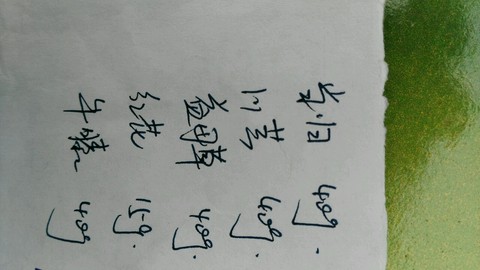 当归 40g.
川芎 40g.
益母草 40g.
红花 15g.
牛膝 40g